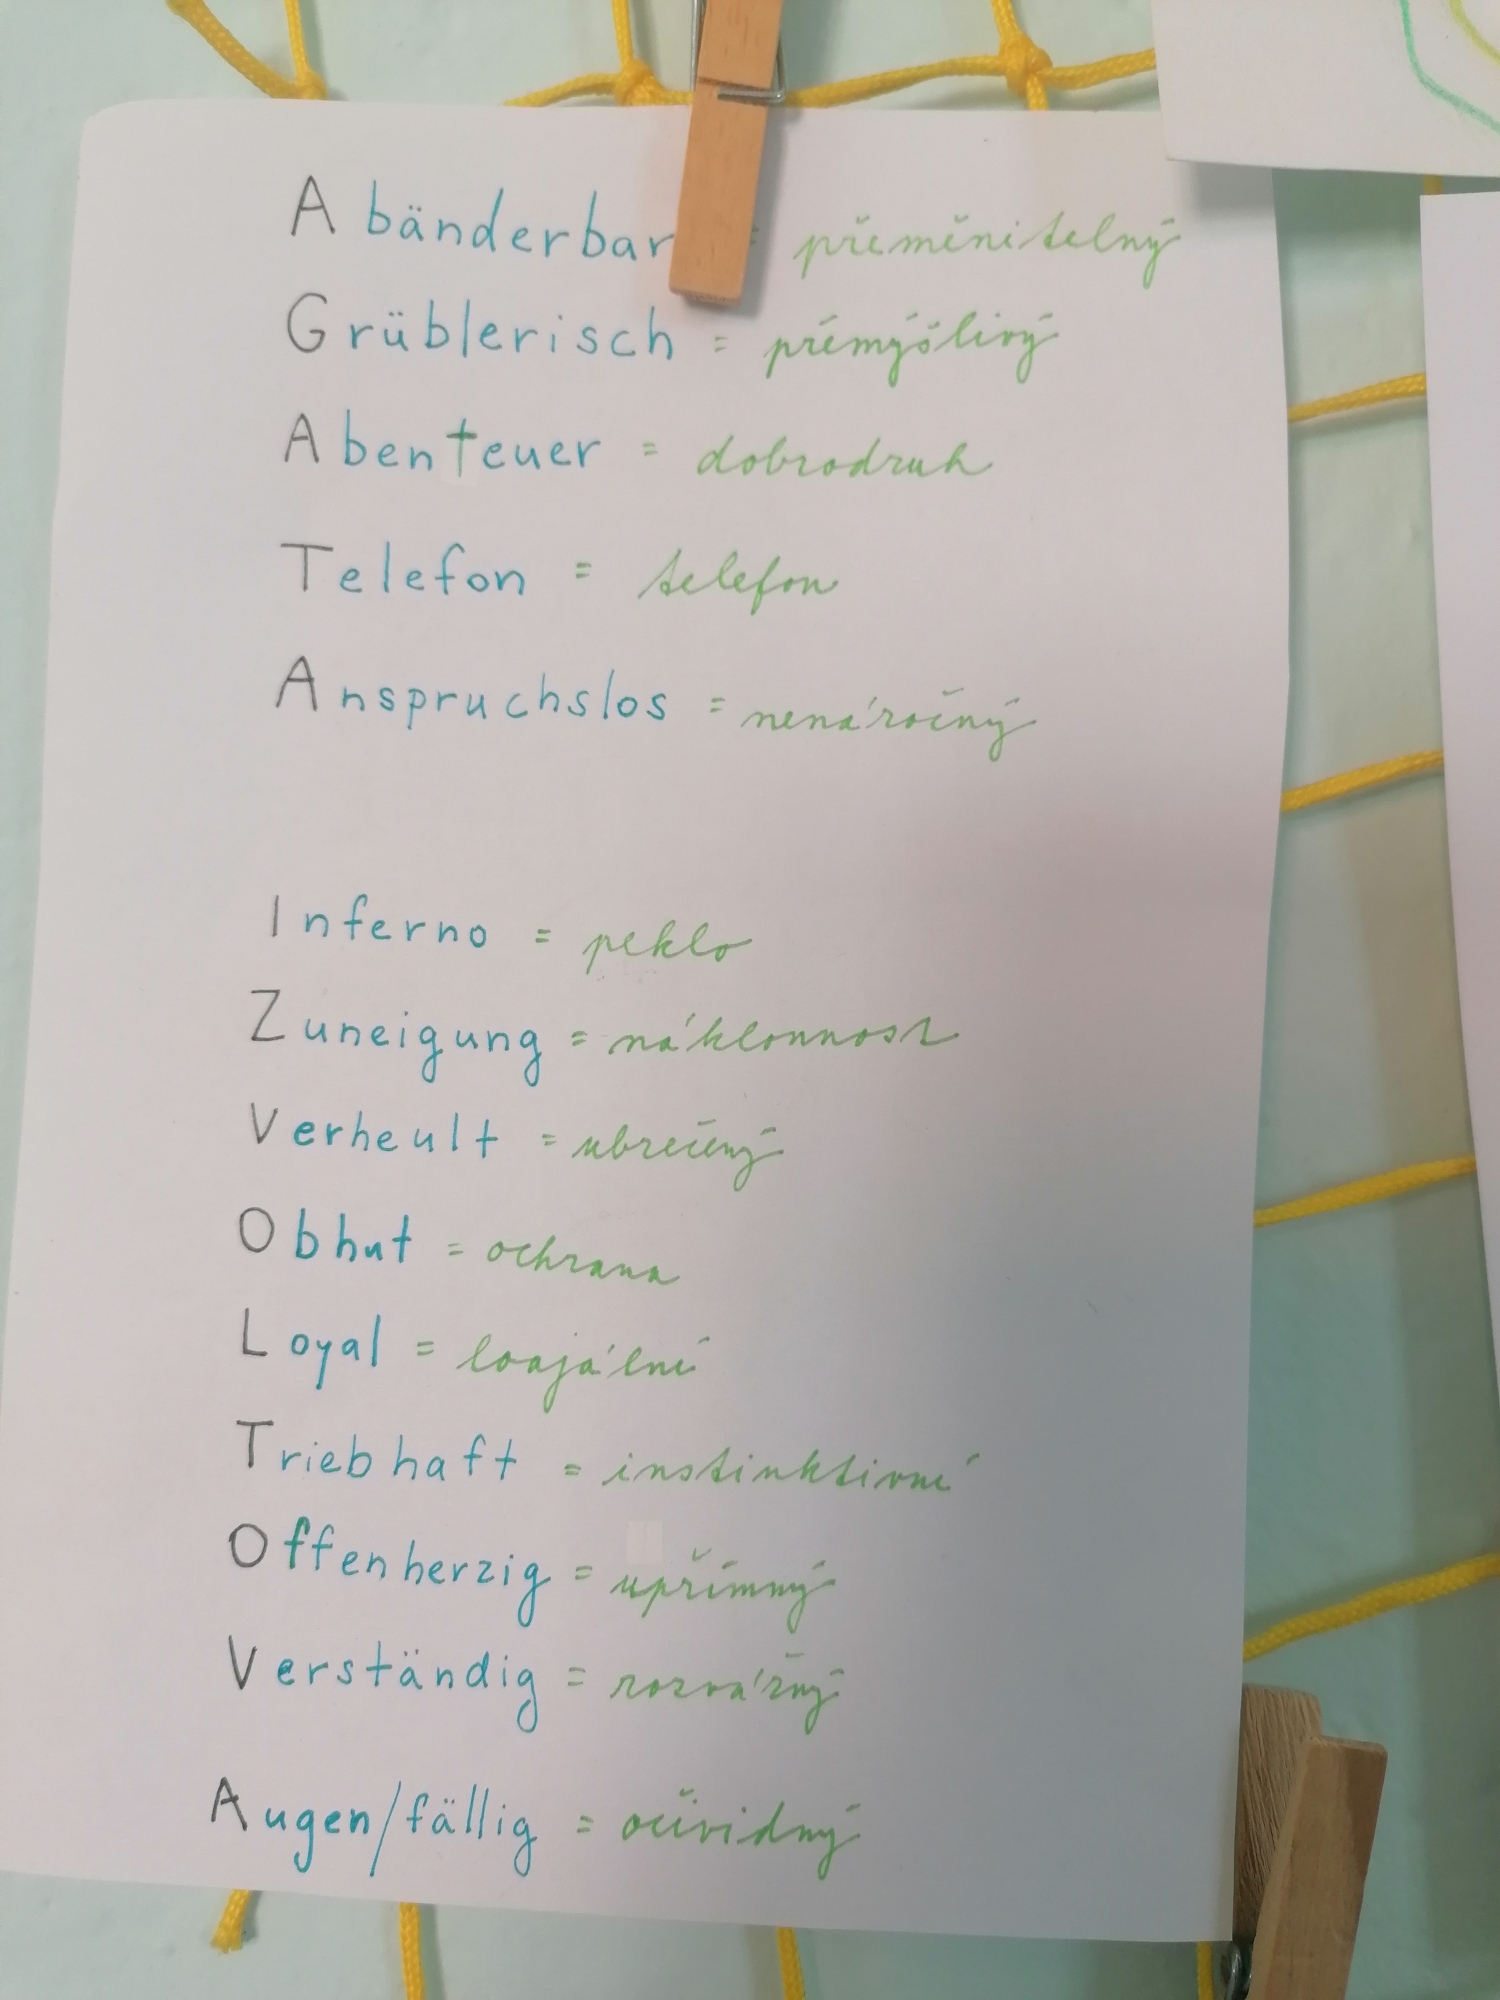 Abänderbar = přeměnitelný
Grüblerisch = přemýšlivý
Abenteuer = dobrodruh
Telefon = telefon
Anspruchslos = nenáročný
Inferno = peklo
Zuneigung = náklonnost
Verheult = ubrečený
Obhut = ochrana
Loyal = loajální
Triebhaft = instinktivní
Offenherzig = upřímný
Verständig = rozvážný
Augen/fällig = očividný